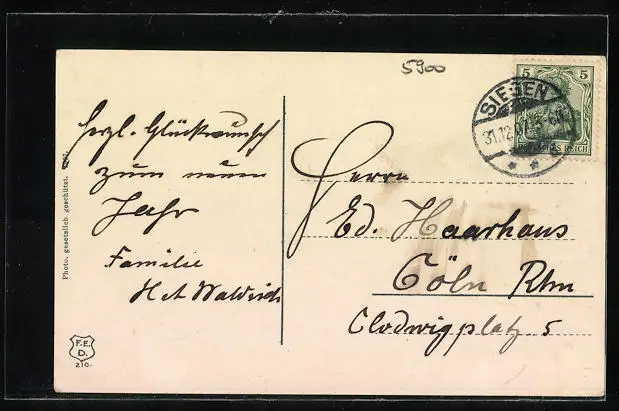 5900
5 5
SIEGEN
31.12.
DEUTSCHES REICH
Herzl. Glückwunsch
zum neuen
Jahr
Familie
Herrn
Ed. Haarhaus
Cöln Rhn
Clodwigplatz 5
Photo. gesetzlich geschützt.
F.E.
D.
210.